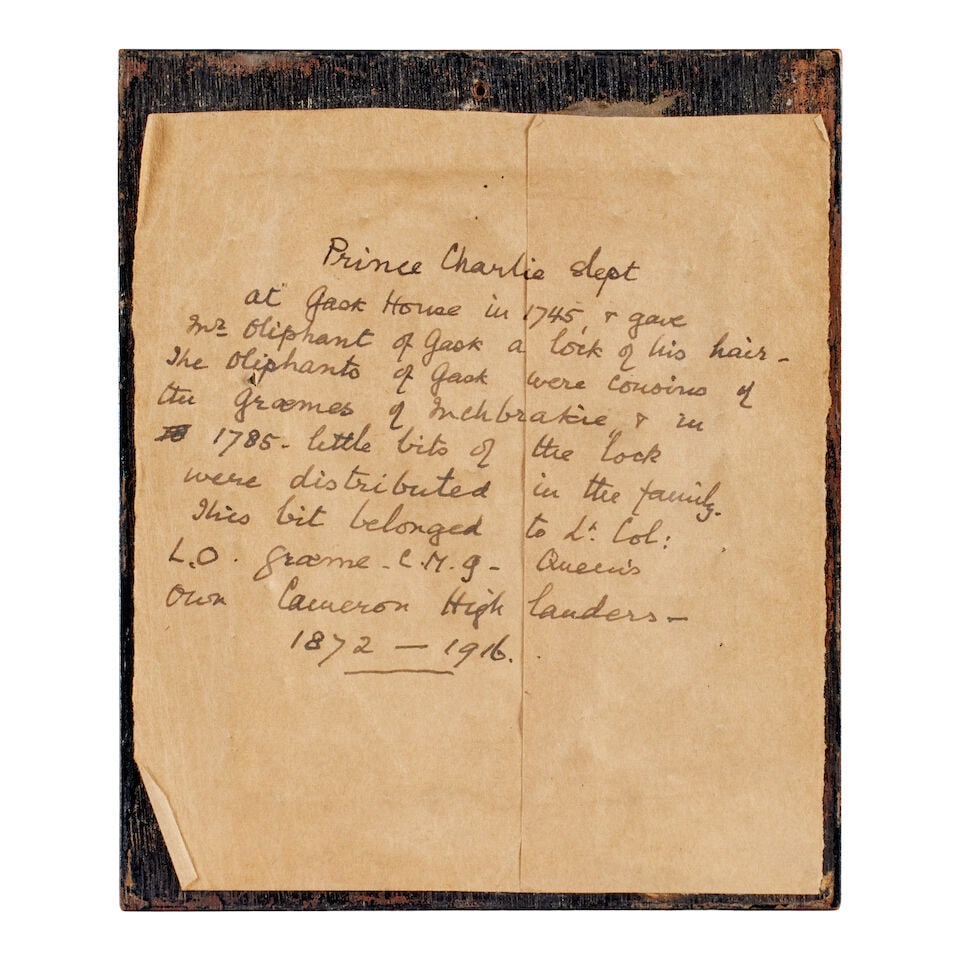 Prince Charlie slept
at Gask House in 1745, & gave
Mr Oliphant of Gask a lock of his hair -
The Oliphants of Gask were cousins of
the Græmes of Inchbrakie, & in
1785 - little bits of the lock
were distributed in the family.
This bit belonged to Lt. Col:
L.O. Græme - C.M.G - Queen's
Own Cameron Highlanders -
1872 - 1916.